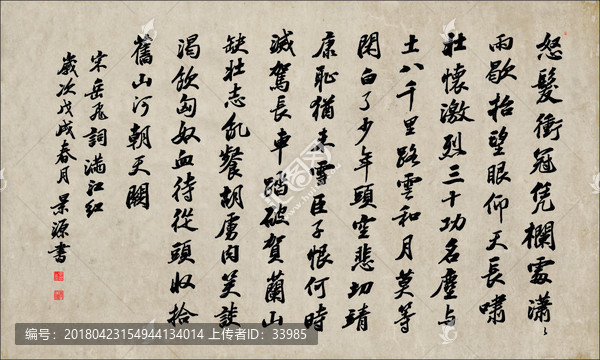 怒髮衝冠凭欄處瀟〻
雨歇抬望眼仰天長嘯
壯懷激烈三十功名塵与
土八千里路雲和月莫等
閑白了少年頭空悲切靖
康恥猶未雪臣子恨何時
滅駕長車踏破賀蘭山
缺壯志飢餐胡虜肉笑談
渴飲匈奴血待從頭收拾
舊山河朝天闕
宋岳飛詞滿江紅
歲次戊戌春月景源書
编号：20180423154944134014 出自ID：33985